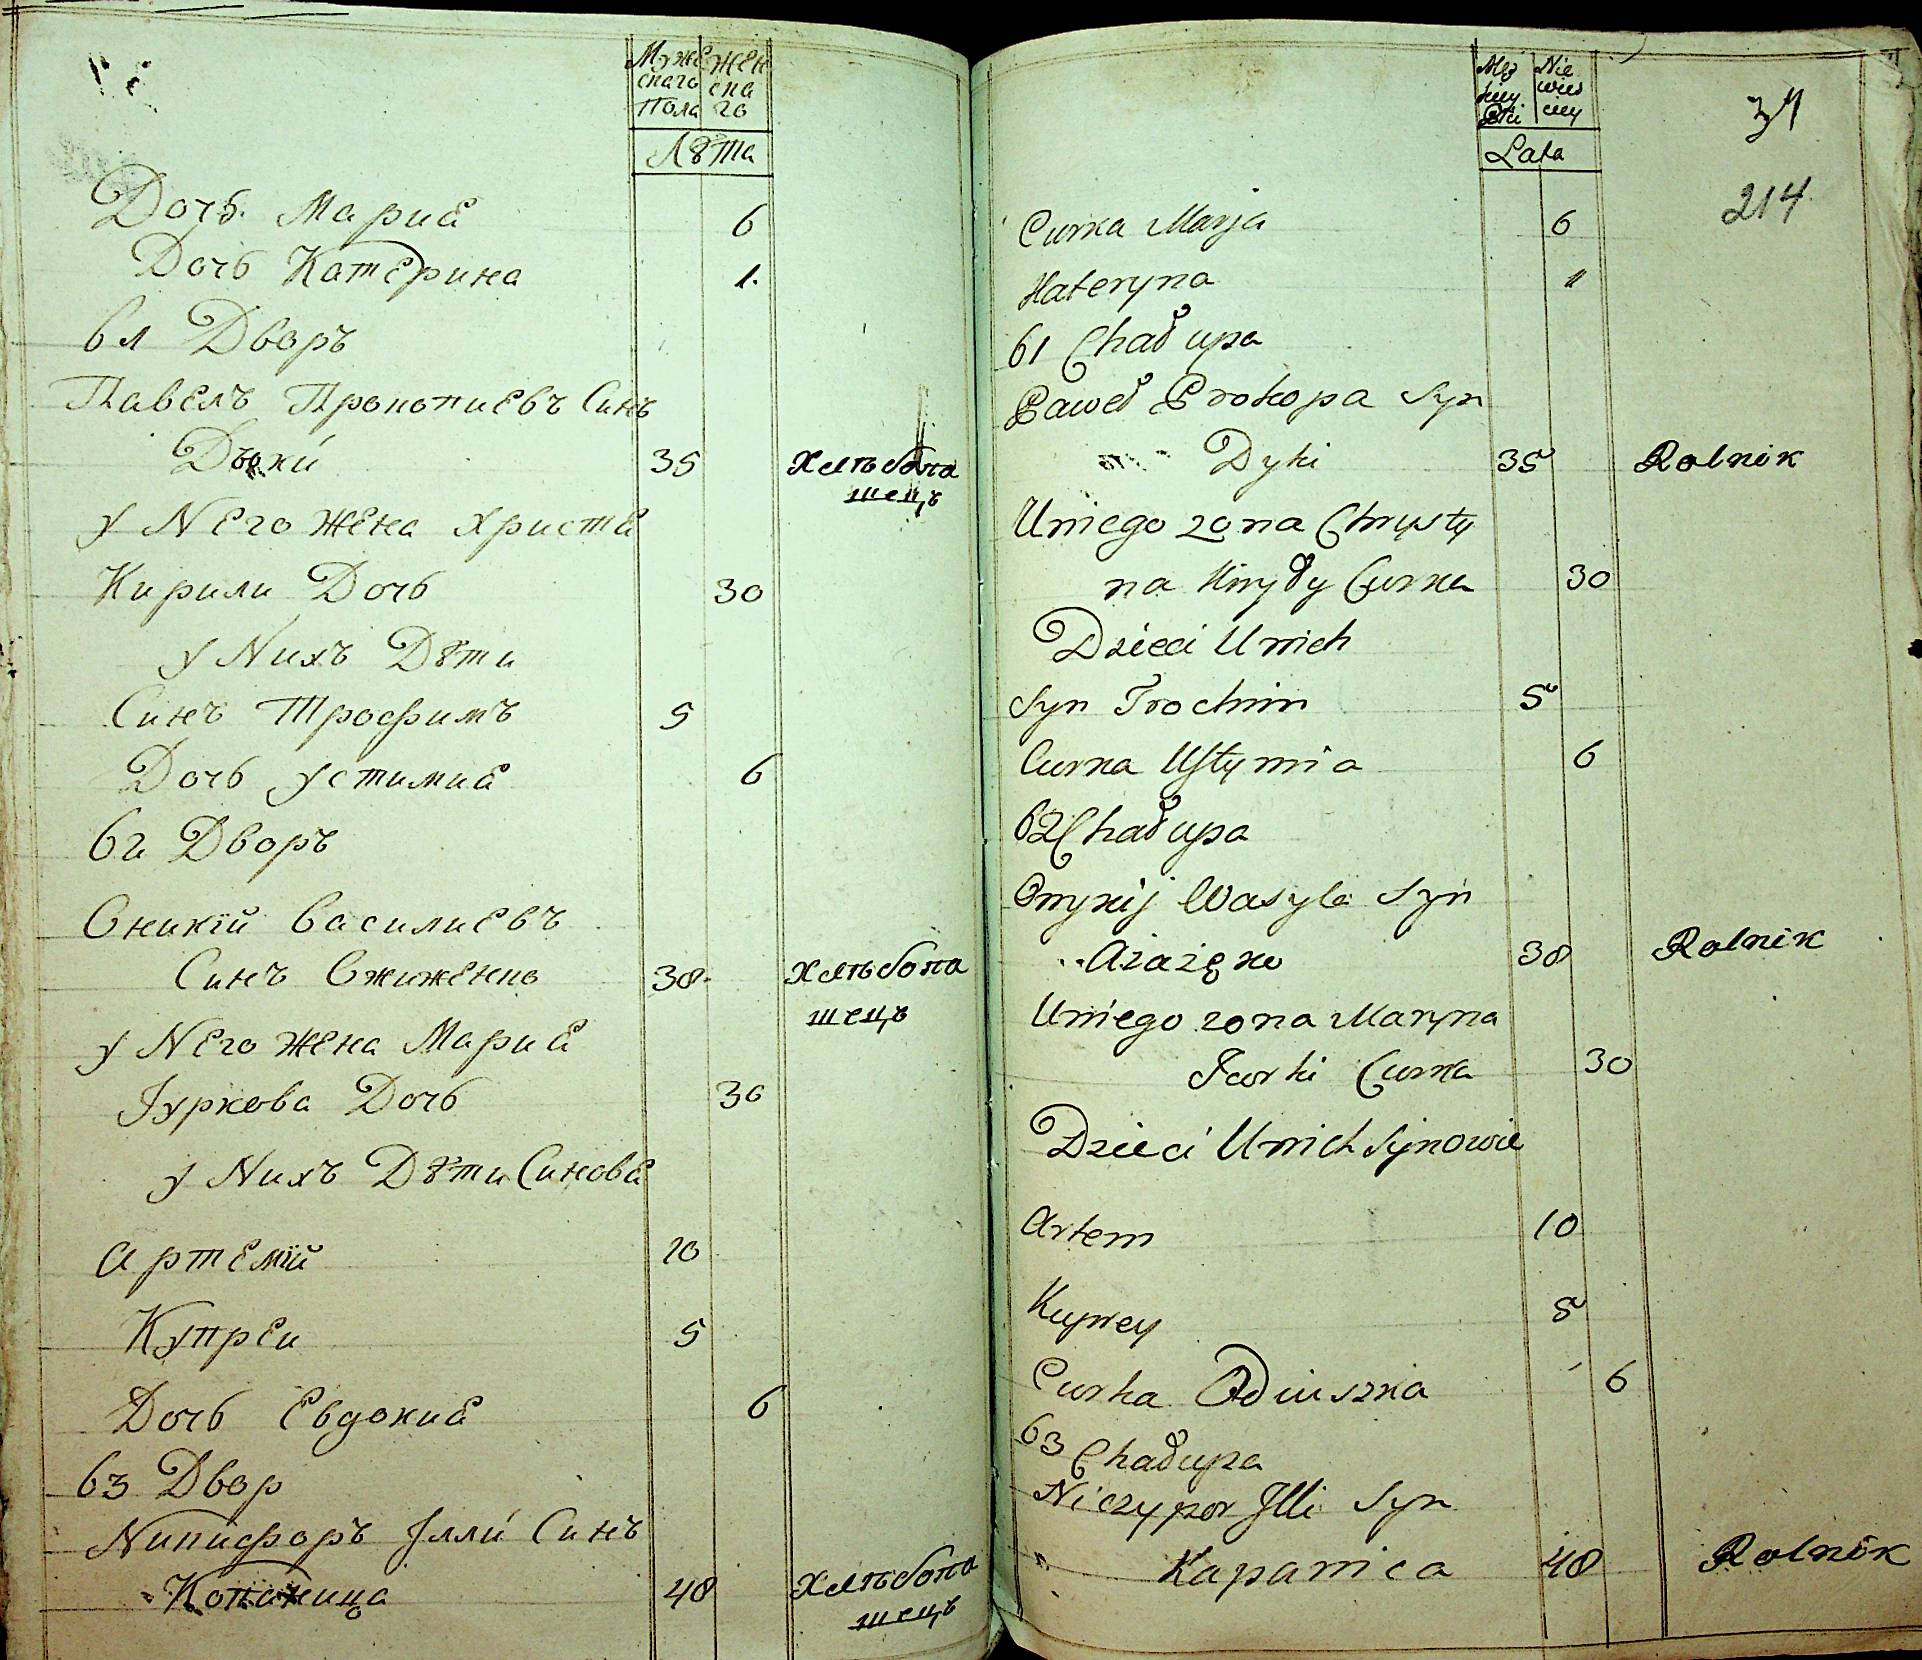 Муже Жен
скаго ска
Пола го
Лѣта
Дочь Мариѣ 6
Дочь Катерина 1.
61 Дворъ
Павелъ Прокопиевъ Синъ
Дыкй 35 Хлѣбопа
шецъ
у Него Жена Христѣ
Кирили Дочь 30
у Нихъ Дѣти
Синъ Трофимъ 5
Дочь Устимиѣ 6
62 Дворъ
Оникїй Василиевъ
Синъ Ожиженко 38. Хлѣбопа
шецъ
у Него Жена Мариѣ
Юркова Дочь 30
у Нихъ Дѣти Синовѣ
Артемїй 10
Купреи 5
Дочь Евдокиѣ 6
63 Двор
Никифоръ Iллй Синъ
Копаница 48 Хлѣбопа
шецъ
Męz Nie
kiey wies
Płci ciey
Lata
34
214
Curka Marja 6
Kateryna 1
61 Chałupa
Paweł Prokopa Syn
Dyki 35 Rolnik
Uniego zona Chrysty
na Kiryły Curka 30
Dzieci Unich
Syn Trochim 5
Curka Ustymia 6
62 Chałupa
Onykij Wasyla Syn
38 Rolnik
Uniego zona Maryna
Jurki Curka 30
Dzieci Unich Synowie
Artem 10
Kuprey 5
Curka 6
63 Chałupa
Niczypor Illi Syn
Kapanica 48 Rolnik